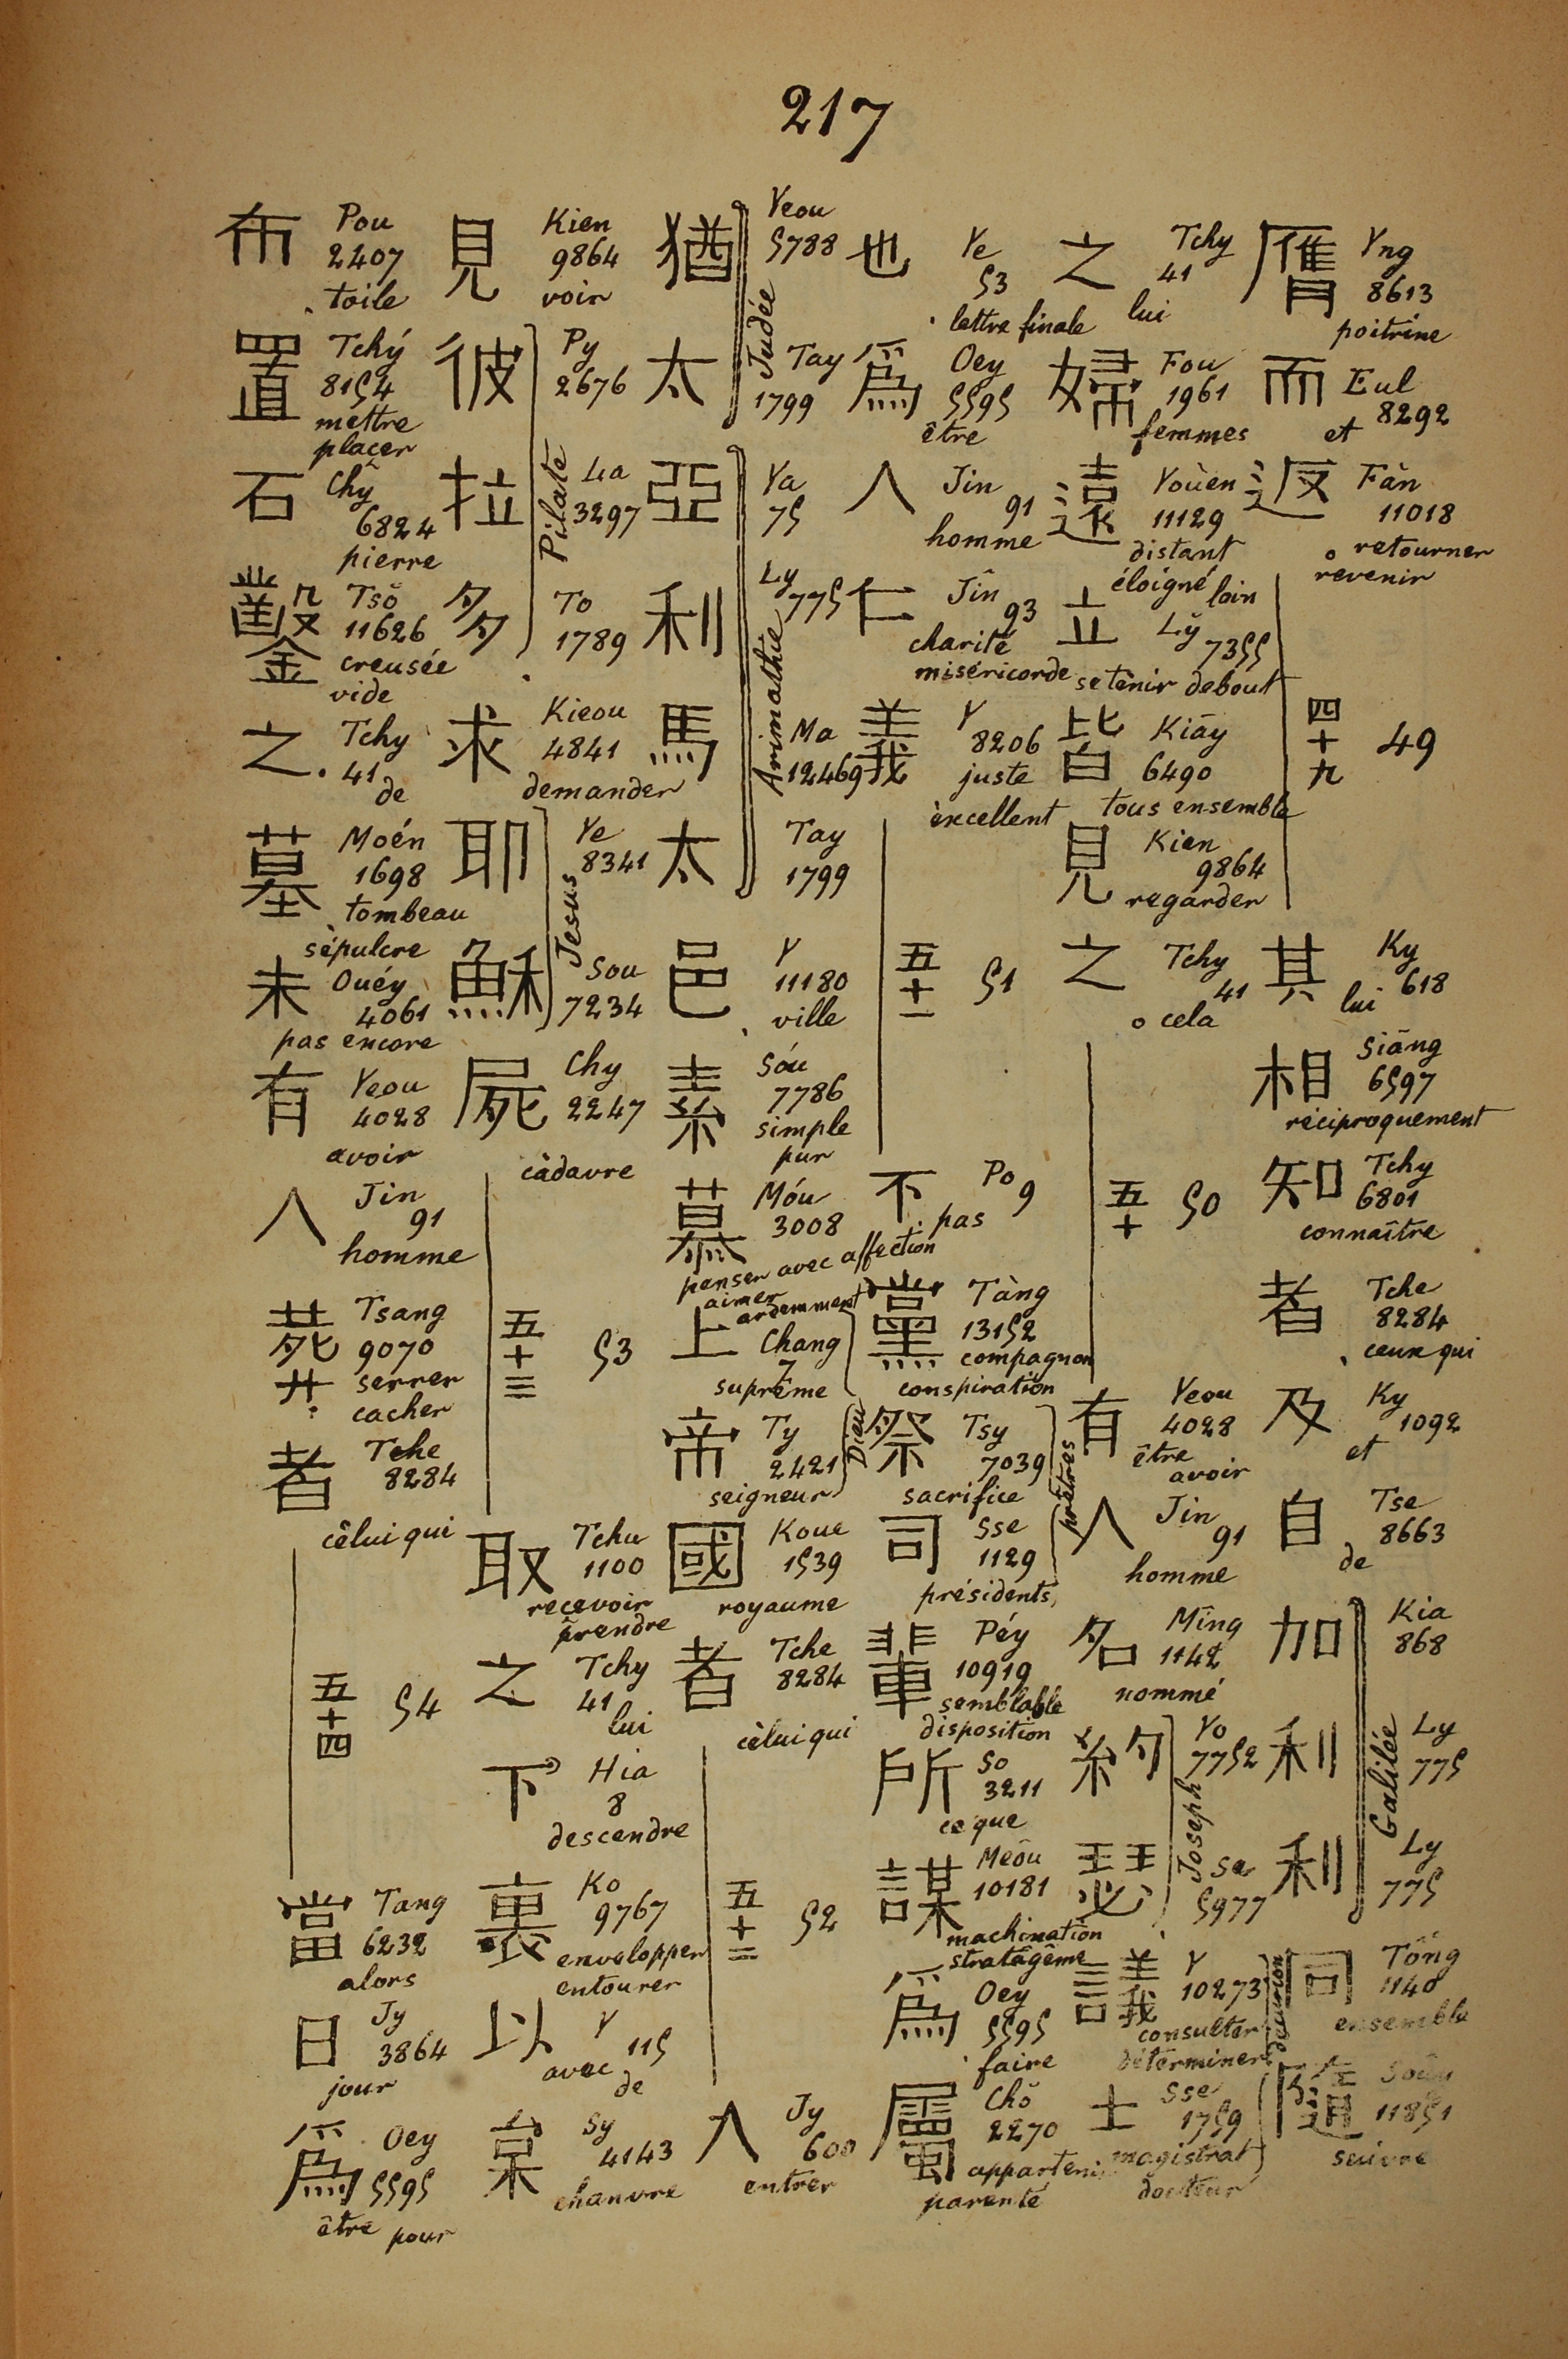 217
膺 Yng 8613 poitrine
而 Eul 8292 et
返 Fàn 11018 retourner revenir
四十九 49
其 Ky 618 lui
相 Siāng 6597 réciproquement
知 Tchy 6801 connaître
者 Tche 8284 ceux qui
及 Ky 1092 et
自 Tse 8663 de
加 Kia 868
利 Ly 775
利 Ly 775
Galilée
同 Tông 1140 ensemble
隨 11851 suivre
之 Tchy 41 lui
婦 Fou 1961 femmes
遠 Yoùen 11129 distant éloigné loin
立 Lỹ 7355 se tenir debout
皆 Kiāy 6490 tous ensemble
見 Kien 9864 regarder
之 Tchy 41 cela
五十 50
有 Yeou 4028 être avoir
人 Jin 91 homme
名 Mîng 1142 nommé
約 Yo 7752
瑟 Se 5977
Joseph
議 Y 10273 consulter déterminer
士 Sse 1759 magistrat docteur
décurion
也 Ye 53 lettre finale
爲 Oey 5595 être
人 Jin 91 homme
仁 Jîn 93 charité miséricorde
義 Y 8206 juste excellent
五十一 51
不 Po 9 pas
黨 Tàng 13152 compagnon conspiration
祭 Tsy 7039 sacrifice
司 Sse 1129 présidents
prêtres
輩 Péy 10919 semblable disposition
所 So 3211 ce que
謀 Meôu 10181 machination stratagême
爲 Oey 5595 faire
屬 Chŏ 2270 appartenir parenté
猶 Yeou 5788
太 Tay 1799
Judée
亞 Ya 75
利 Ly 775
馬 Ma 12469
太 Tay 1799
Arimathie
邑 Y 11180 ville
素 Sóu 7786 simple pur
慕 Móu 3008 penser avec affection aimer ardemment
上 Chang 7 suprême
帝 Ty 2421 seigneur
Dieu
國 Koue 1539 royaume
者 Tche 8284 celui qui
五十二 52
入 Jy 600 entrer
見 Kien 9864 voir
彼 Py 2676
拉 La 3297
多 To 1789
Pilate
求 Kieou 4841 demander
耶 Ye 8341
穌 Sou 7234
Jesus
屍 Chy 2247 cadavre
五十三 53
取 Tchu 1100 recevoir prendre
之 Tchy 41 lui
下 Hia 8 descendre
裹 Ko 9767 envelopper entourer
以 Y 115 avec de
枲 Sy 4143 chanvre
布 Pou 2407 toile
置 Tchý 8154 mettre placer
石 Chỹ 6824 pierre
鑿 Tsŏ 11626 creusée vide
之 Tchy 41 de
墓 Moén 1698 tombeau sépulcre
未 Ouéy 4061 pas encore
有 Yeou 4028 avoir
人 Jin 91 homme
葬 Tsang 9070 serrer cacher
者 Tche 8284 celui qui
五十四 54
當 Tang 6232 alors
日 Jy 3864 jour
爲 Oey 5595 être pour